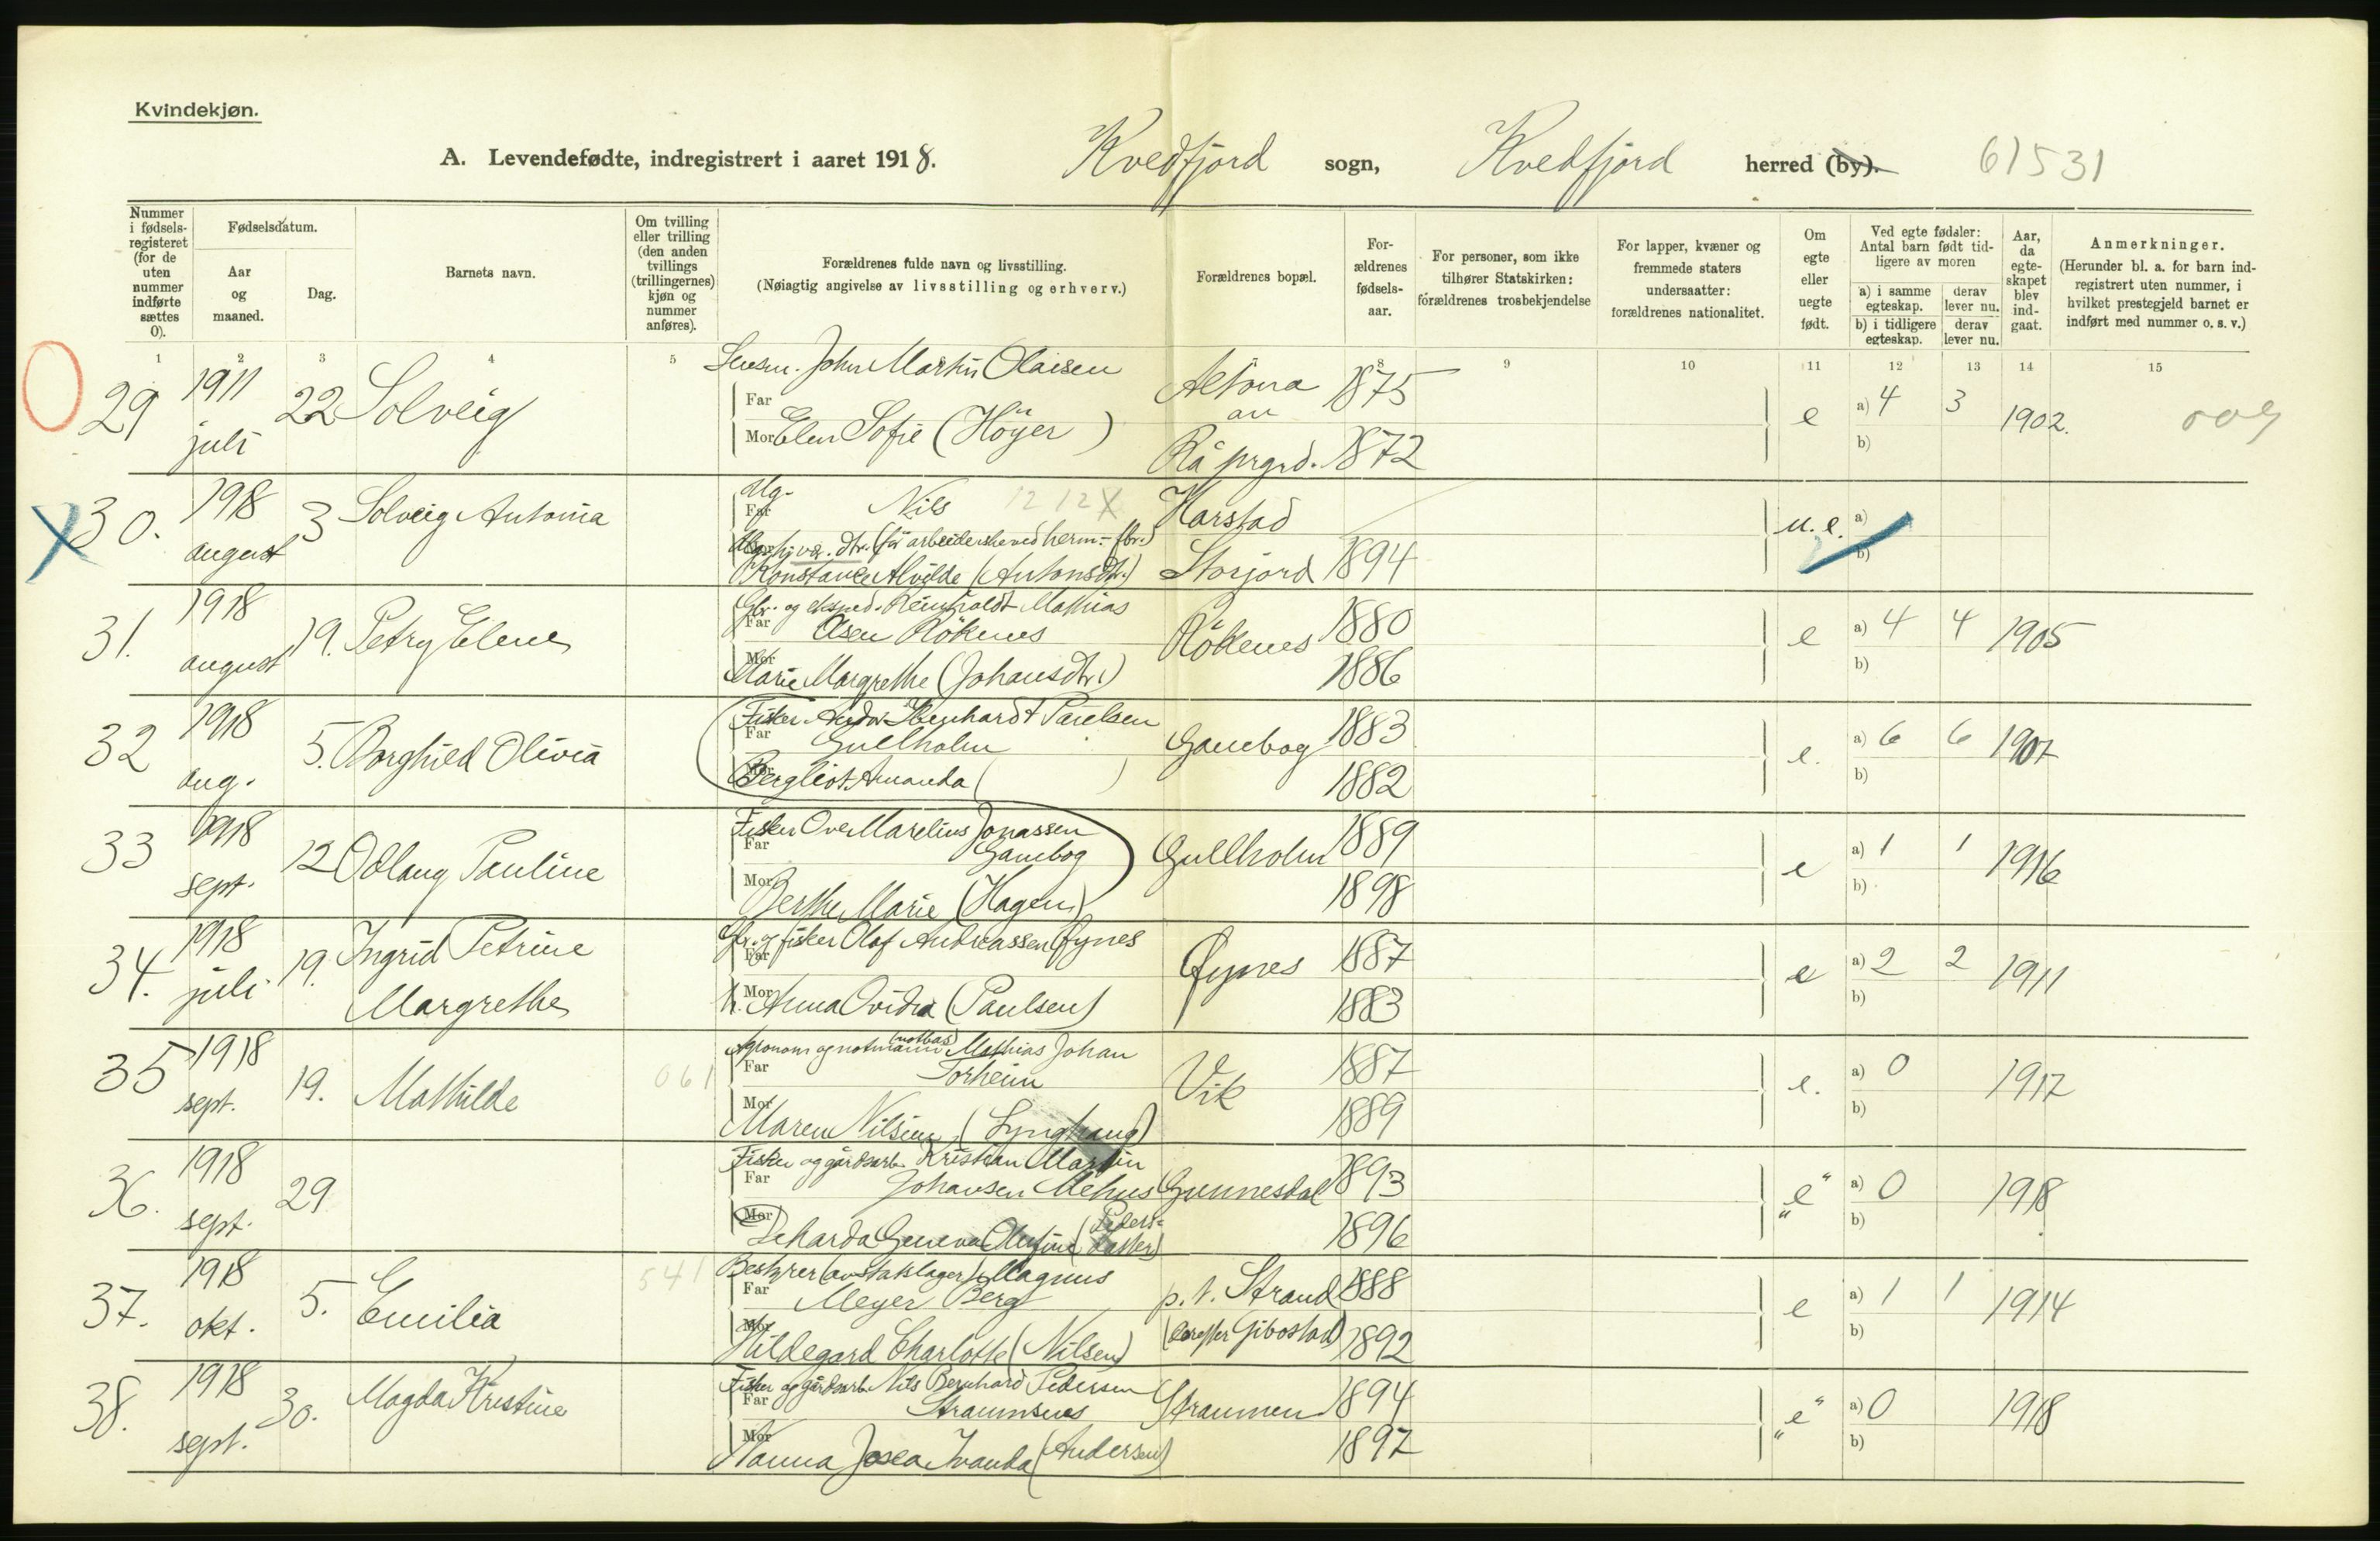 Kvindekjøn.
A. Levendefødte, indregistrert i aaret 1918. Kvedfjord sogn, Kvedfjord herred (by). 61531
Nummer i fødsels-registeret (for de uten nummer indførte sættes 0).
Fødselsdatum.
Aar og maaned.
Dag.
Barnets navn.
Om tvilling eller trilling (den anden tvillings (trillingernes) kjøn og nummer anføres).
Forældrenes fulde navn og livsstilling.
(Nøiagtig angivelse av livsstilling og erhverv.)
Forældrenes bopæl.
For-ældrenes fødsels-aar.
For personer, som ikke tilhører Statskirken: forældrenes trosbekjendelse
For lapper, kvæner og fremmede staters undersaatter: forældrenes nationalitet.
Om egte eller uegte født.
Ved egte fødsler: Antal barn født tid-ligere av moren
a) i samme egteskap. derav lever nu.
b) i tidligere egteskap. derav lever nu.
Aar, da egte-skapet blev ind-gaat.
Anmerkninger.
(Herunder bl. a. for barn ind-registrert uten nummer, i hvilket prestegjeld barnet er indført med nummer o. s. v.)
1 2 3 4 5 8 9 10 11 12 13 14 15
John Martin Olaisen
29 1911 juli 22 Solveig Far Altona 1875 e a) 4 3 1902. 009
Mor Elen Sofie (Höyer) Rå prgrd. 1872 b)
30. 1918 august 3 Solveig Antonia Far Nils 12 12 X Harstad u.e. a)
Konstance Alvilde (Antonsdtr.) Storjord 1894 b)
31. 1918 august 19. Petry Elene Gbr. og eksped. Reinholdt Mathias
Far Olsen Rökenes Rökenes 1880 e a) 4 4 1905
Mor Marie Margrethe (Johansdtr.) 1886 b)
32 1918 aug. 5. Borghild Olivia Fisker Andor Ebenhardt Paulsen
Far Gullholm Gambog 1883 e. a) 6 6 1907
Mor Bergliot Amanda ( ) 1882 b)
33 1918 sept. 12 Odlaug Pauline Fisker Ove Marelius Jonassen
Far Gambog Gullholm 1889 e a) 1 1 1916
Mor Berthe Marie (Hagen) 1898 b)
34. 1918 juli 19. Ingrid Petrine Margrethe Gbr. og fisker Olaf Andreassen Øynes
Far Øynes 1887 e a) 2 2 1911
Mor h. Anna Ovidia (Paulsen) 1883 b)
35 1918 sept. 19. Mathilde 061 Agronom og notmann (notbas) Mathias Johan
Far Torheim Vik 1887 e. a) 0 1917
Mor Maren Nilsine (Lynghaug) 1889 b)
36. 1918 sept. 29 Fisker og gårdsarb. Kristian Martin
Far Johansen Mehus Gunnesdal 1893 "e" a) 0 1918
Mor (Peders-datter) 1896 b)
37. 1918 okt. 5. Emilia 541 Bestyrer (av statslager) Magnus
Far Meyer Berg p. t. Strand 1888 e a) 1 1 1914
Mor Hildegard Charlotte (Nilsen) (derefter Gibostad) 1892 b)
38. 1918 sept. 30. Magda Kristine Fisker og gårdsarb. Nils Bernhard Pedersen
Far Straumsnes Straumen 1894 "e" a) 0 1918
Mor Nanna Josea Ivanda (Andersen) 1897 b)